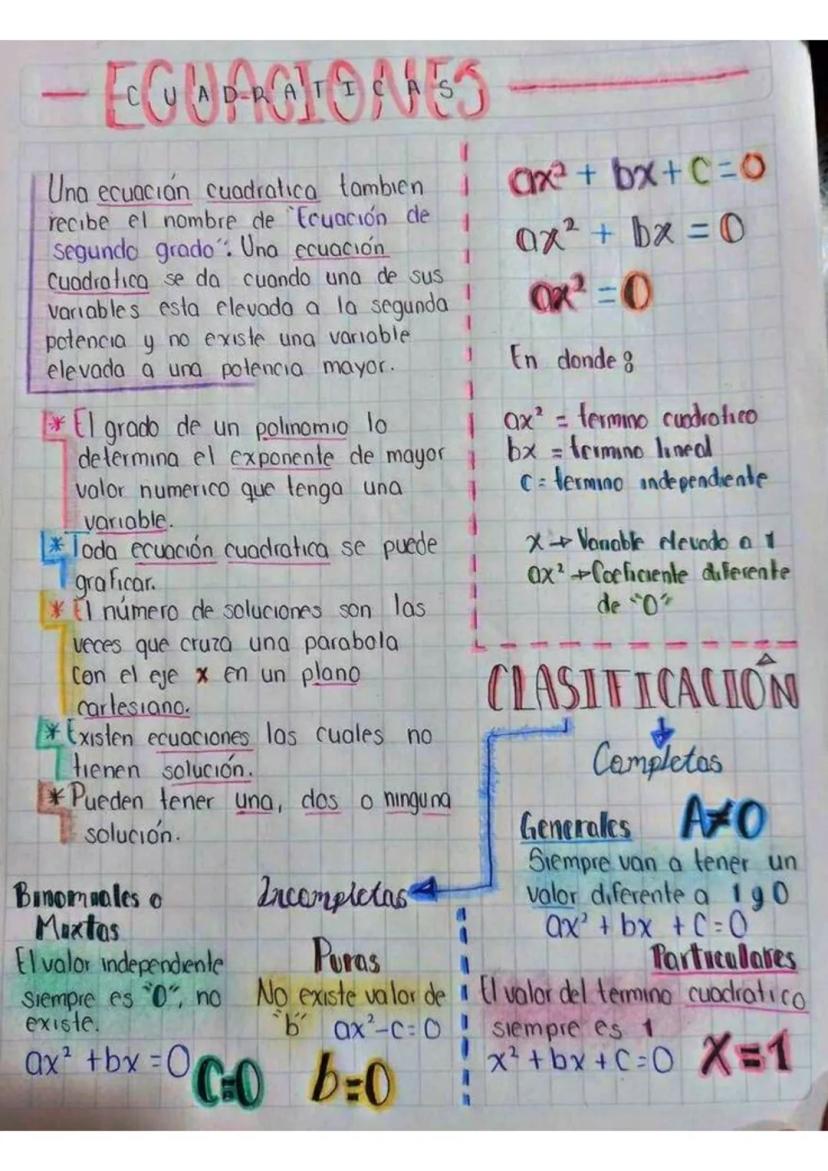 ECUACIONES
CUADRATICAS
Una ecuación cuadratica tambien
recibe el nombre de "Ecuación de
segundo grado". Una ecuación
cuadratica se da cuando una de sus
variables esta elevada a la segunda
potencia y no existe una variable
elevada a una potencia mayor.
* El grado de un polinomio lo
determina el exponente de mayor
valor numerico que tenga una
variable.
* Toda ecuación cuadratica se puede
graficar.
* El número de soluciones son las
veces que cruza una parabola
con el eje x en un plano
cartesiano.
* Existen ecuaciones las cuales no
tienen solución.
* Pueden tener una, dos o ninguna
solución.
ax² + bx + c = 0
ax² + bx = 0
ax² = 0
En donde:
ax² = termino cuadratico
bx = termino lineal
c = termino independiente
x → Variable elevado a 1
ax² → Coeficiente diferente
de "0"
CLASIFICACIÓN
Completas
Generales A≠0
Siempre van a tener un
valor diferente a 1 y 0
ax² + bx + c = 0
Particulares
El valor del termino cuadratico
siempre es 1
x² + bx + c = 0 X=1
Incompletas
Binomiales o
Mixtas
El valor independiente
siempre es "0", no
existe.
ax² + bx = 0 C=0
Puras
No existe valor de
"b" ax²-c=0
b=0